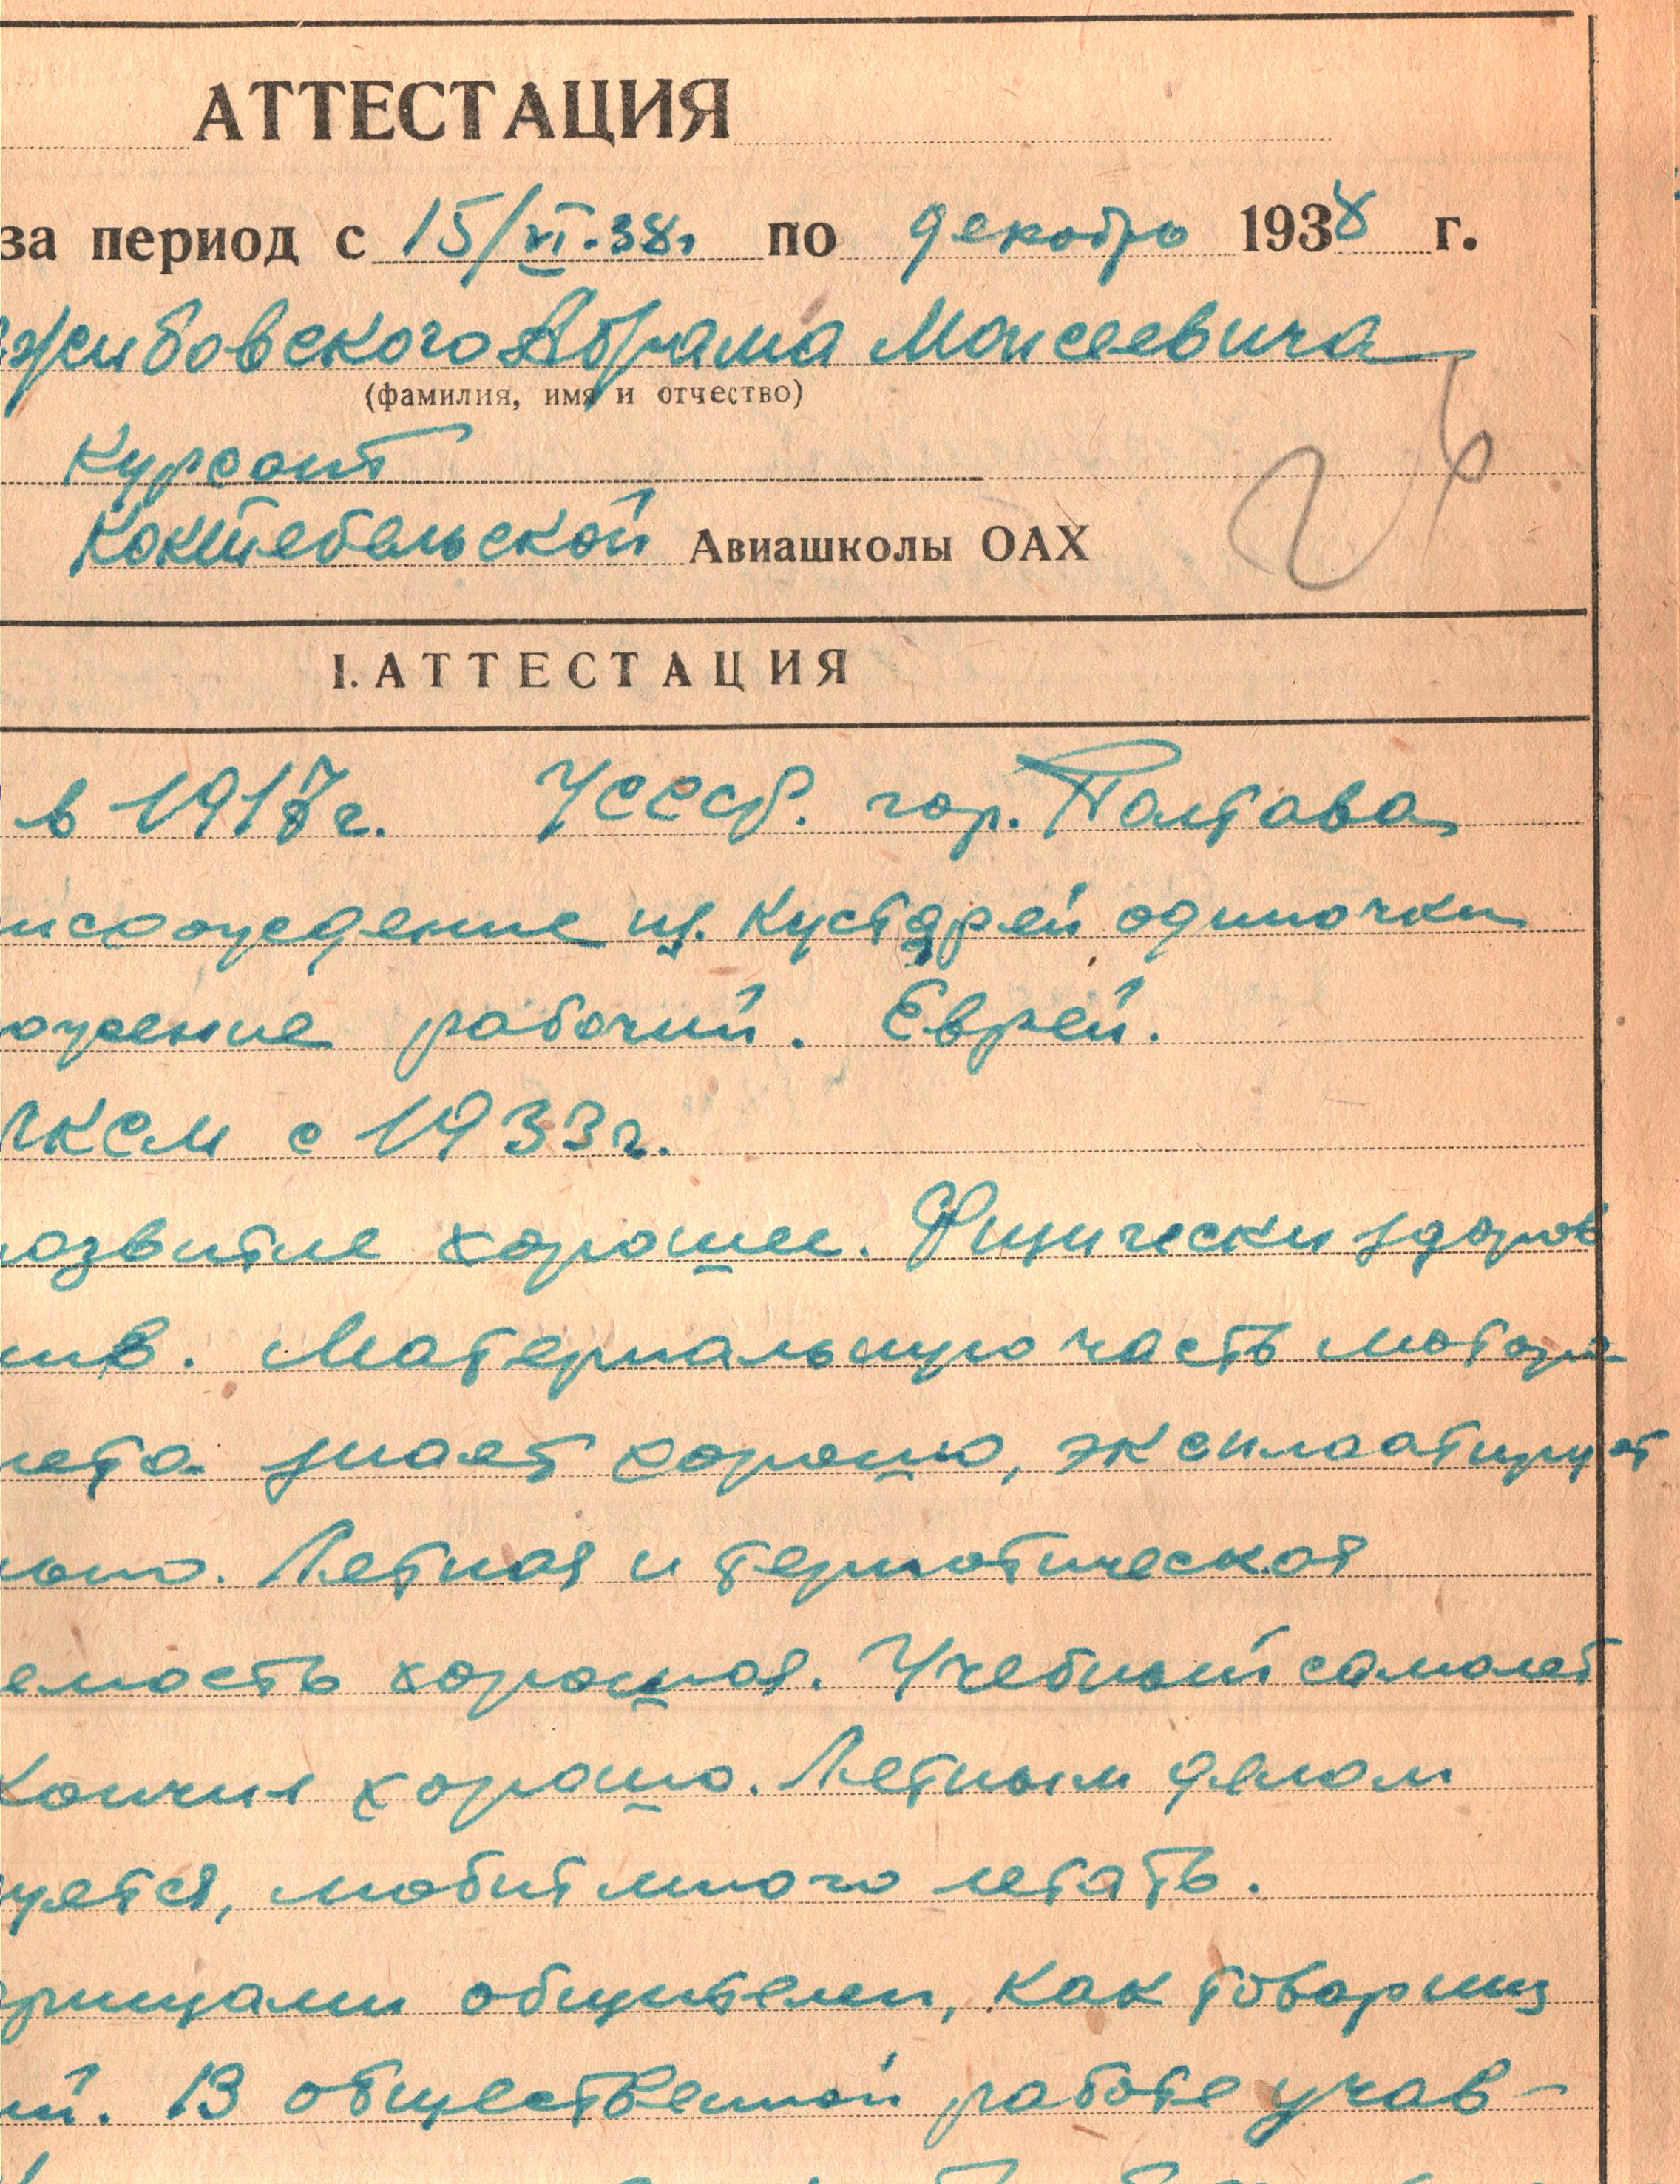 АТТЕСТАЦИЯ
за период с 15/VI-38г по декабрь 1938 г.
жибовского Абрама Моисеевича
(фамилия, имя и отчество)
Курсант
Коктебельской Авиашколы ОАХ
I. АТТЕСТАЦИЯ
в 1917г. УССР. гор. Полтава
исхождение из. кустарей одиночки
ожение рабочий. Еврей.
ЛКСМ с 1933г.
развитие хорошее. Физически здоров
ив. Материальную часть мотора
лета знает хорошо, эксплоатирует
но. Летная и теоретическая
емость хорошая. Учебный самолет
кончил хорошо. Летным делом
уется, любит много летать.
арищами общителен, как товарищ
ий. В общественной работе учав-